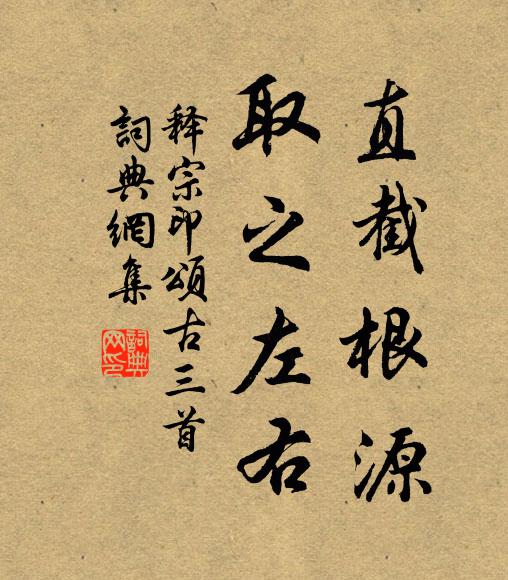 直截根源
取之左右
释宗印頌古三首
詞典網集
詞典網印